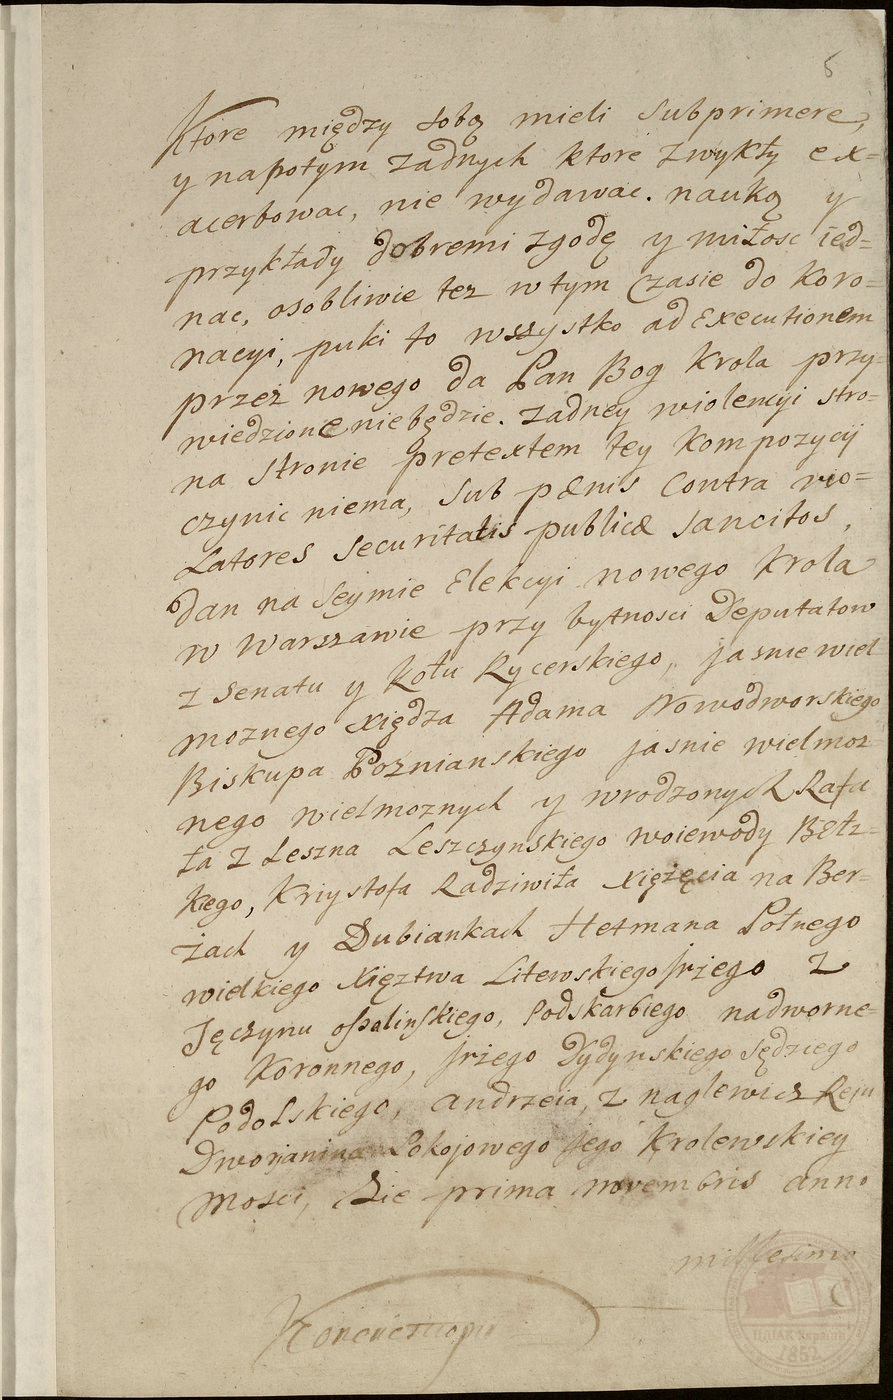 5
Ktore między sobą mieli subprimere,
y napotym zadnych ktore zwykły ex=
acerbowac, nie wydawac. nauką y
przykłady dobremi zgodę y miłosc ied=
nac, osobliwie tez w tym czasie do koro=
nacyi, puki to wszystko ad Executionem
przez nowego da Pan Bog Krola przy=
wiedzione niebędzie. zadney wiolencyi stro=
na stronie pretextem tey kompozycij
czynic niema, sub pænis contra vio=
Latores securitatis publicæ sancitos,
dan na seymie Elekcyi nowego Krola
w Warszawie przy bytnosci Deputatow
z senatu y Kołu Rycerskiego, jasnie wiel
moznego xiędza Adama Nowodworskiego
Biskupa Poznianskiego jasnie wielmoz
nego wielmoznych y wrodzonych Rafa
ła z Leszna Leszczynskiego woiewody Bełz=
kiego, Krzystofa Radziwiła xiążęcia na Ber=
żach y Dubiankach Hetmana Polnego
wielkiego xięztwa Litewskiego Jrzego z
Tęczynu ossalinskiego, Podskarbiego nadworne=
go Koronnego, Jrzego Dydynskiego sędziego
Podolskiego, andrzeia, z naglewicz Reju
Dworjanina Pokojowego Jego Krolewskiey
Mosci, Die prima novembris anno
millesimo
ЦДІАК України
1852